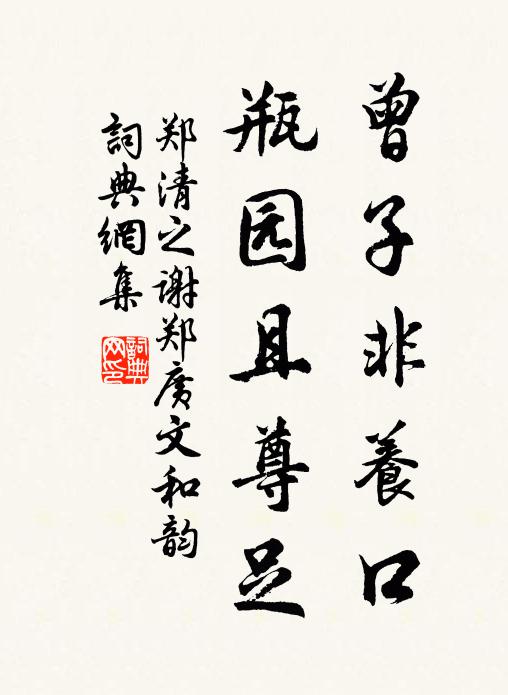 曾子非養口
瓶园且尊足
郑清之谢郑廣文和韵
詞典網集
詞典网印